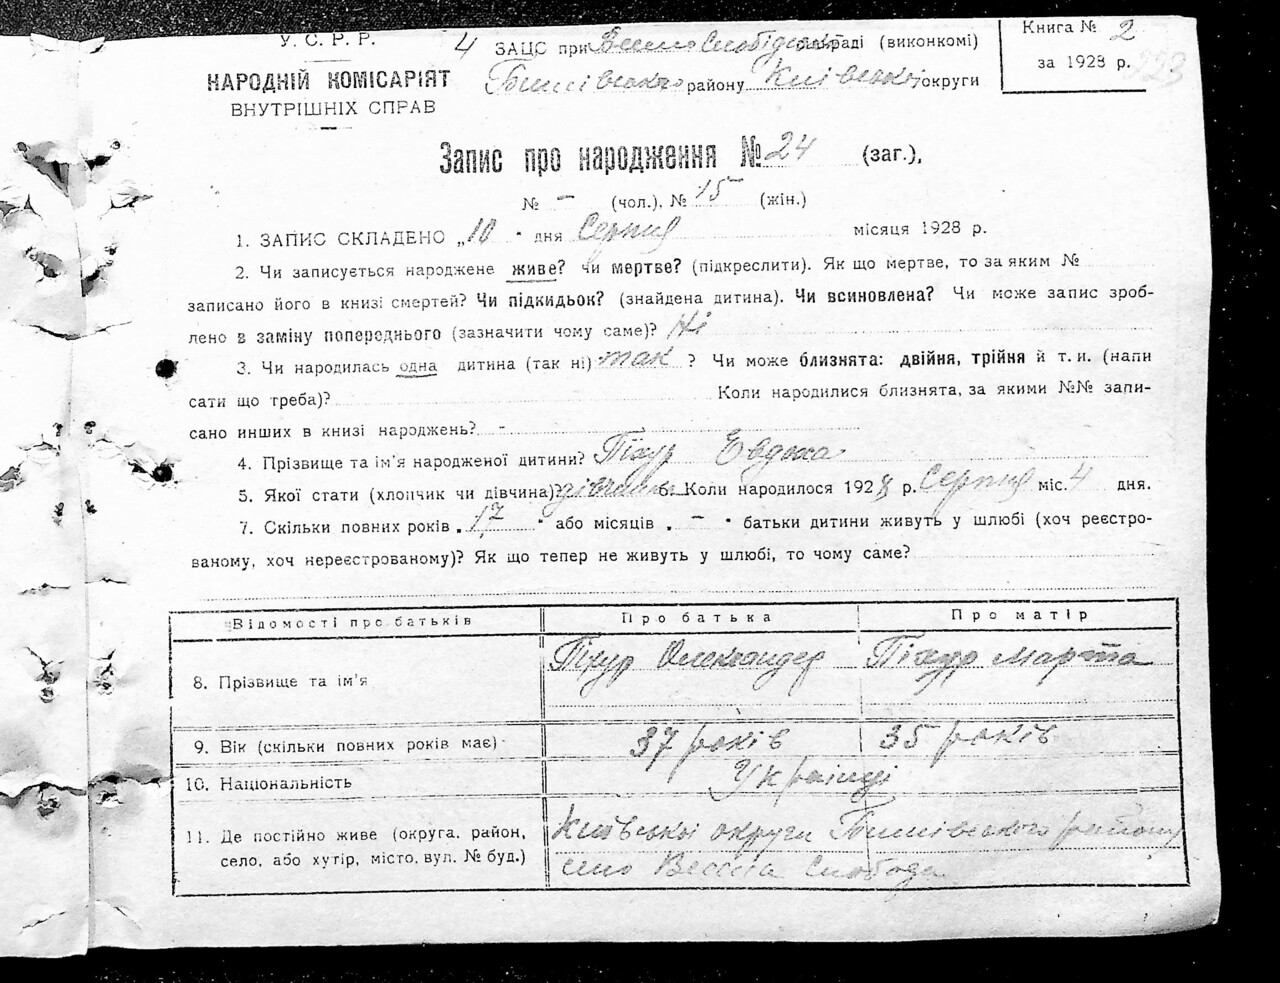 У. С. Р. Р.
НАРОДНІЙ КОМІСАРІЯТ
ВНУТРІШНІХ СПРАВ
4 ЗАЦС при раді (виконкомі)
району Київської округи
Книга № 2
за 1928 р. 223
Запис про народження № 24 (заг.),
№ – (чол.), № 15 (жін.)
1. ЗАПИС СКЛАДЕНО „10" дня Серпня місяця 1928 р.
2. Чи записується народжене живе? чи мертве? (підкреслити). Як що мертве, то за яким №
записано його в книзі смертей? Чи підкидьок? (знайдена дитина). Чи всиновлена? Чи може запис зроб-
лено в заміну попереднього (зазначити чому саме)? Ні
3. Чи народилась одна дитина (так ні) так ? Чи може близнята: двійня, трійня й т. и. (напи
сати що треба)? Коли народилися близнята, за якими №№ запи-
сано инших в книзі народжень? -
4. Прізвище та ім'я народженої дитини? Піхур Евдоха
5. Якої стати (хлопчик чи дівчина)? дівчина 6. Коли народилося 1928 р. Серпня міс. 4 дня.
7. Скільки повних років „17" або місяців „–" батьки дитини живуть у шлюбі (хоч реєстро-
ваному, хоч нереєстрованому)? Як що тепер не живуть у шлюбі, то чому саме?
Відомості про батьків Про батька Про матір
8. Прізвище та ім'я Піхур Олександер Піхур Марта
9. Вік (скільки повних років має) 37 років 35 років
10. Національність Українці
11. Де постійно живе (округа, район,
село, або хутір, місто, вул. № буд.)
Київської округи району
село Слобода